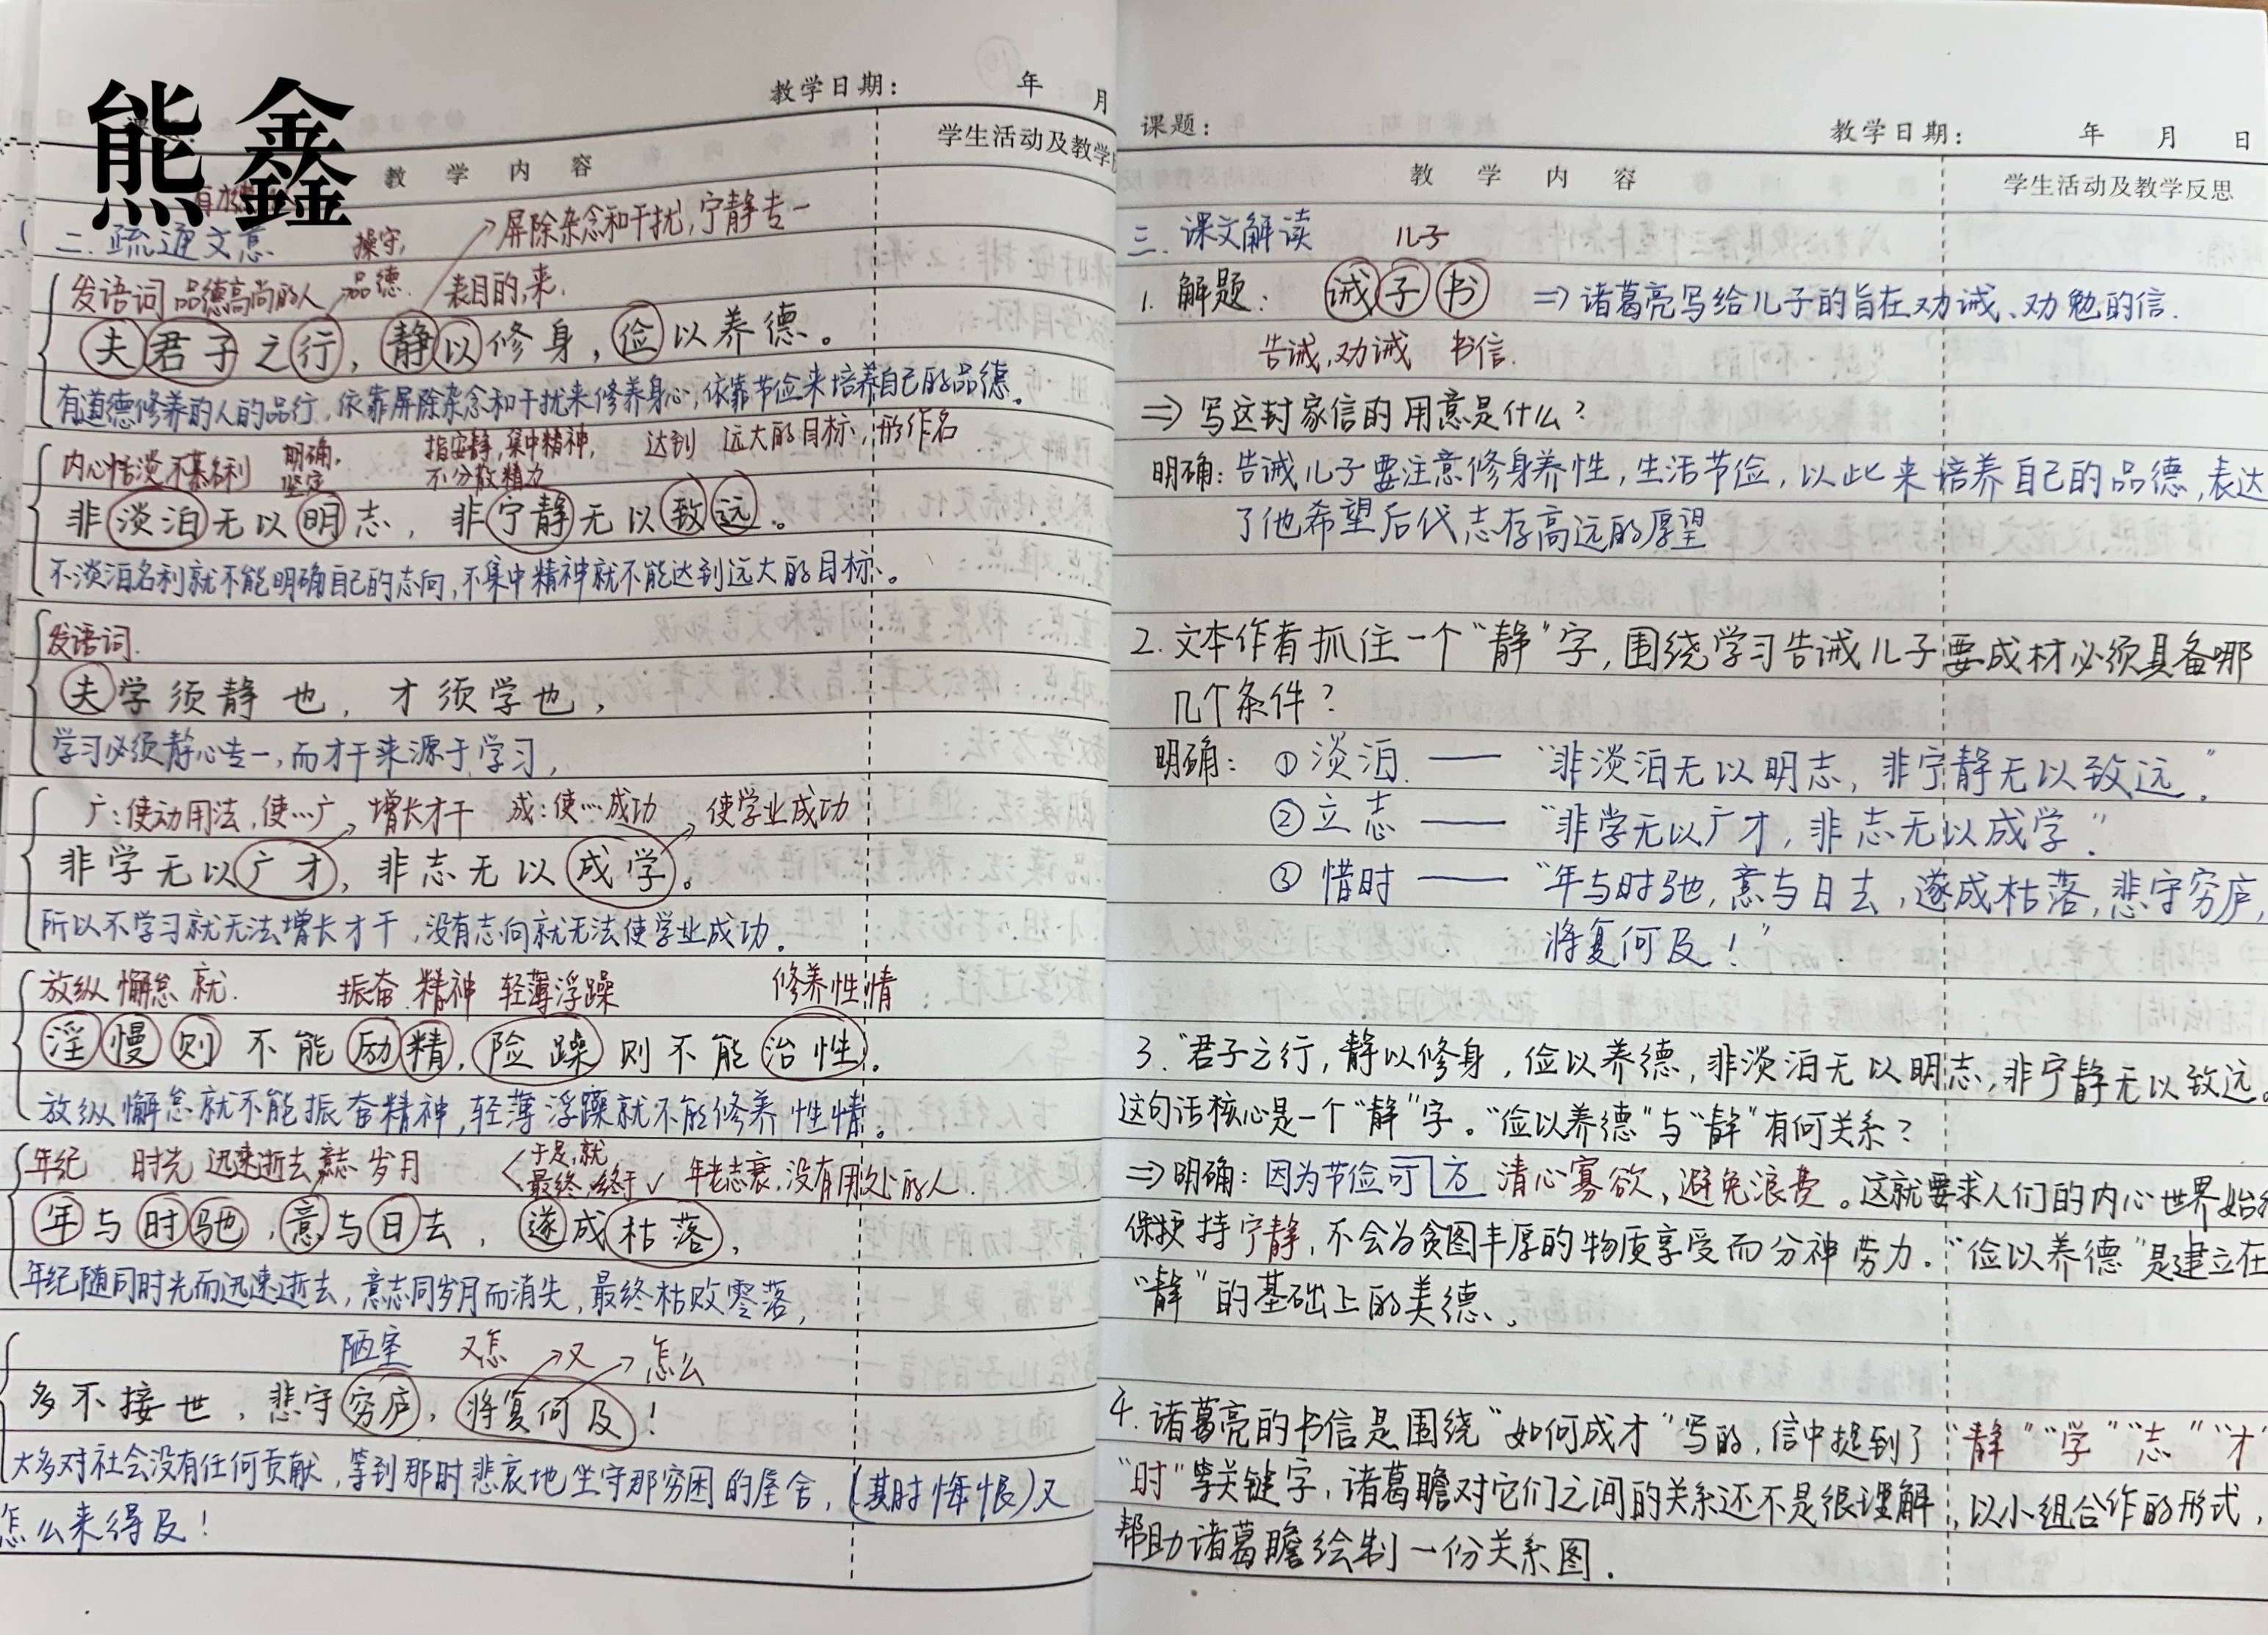 熊鑫
教学日期： 年 月
教 学 内 容 学生活动及教学
二.疏通文意 操守, 屏除杂念和干扰,宁静专一
发语词 品德高尚的人 品德. 表目的,来.
夫君子之行，静以修身，俭以养德。
有道德修养的人的品行,依靠屏除杂念和干扰来修养身心,依靠节俭来培养自己的品德。
内心恬淡不慕名利 明确,坚定 指安静,集中精神,不分散精力 达到 远大的目标,形作名
非淡泊无以明志，非宁静无以致远。
不淡泊名利就不能明确自己的志向,不集中精神就不能达到远大的目标。
发语词.
夫学须静也，才须学也，
学习必须静心专一,而才干来源于学习,
广:使动用法,使…广 增长才干 成:使…成功 使学业成功
非学无以广才，非志无以成学。
所以不学习就无法增长才干,没有志向就无法使学业成功.
放纵 懈怠 就. 振奋 精神 轻薄浮躁 修养性情
淫慢则不能励精,险躁则不能治性.
放纵懈怠就不能振奋精神,轻薄浮躁就不能修养性情。
年纪 时光 迅速逝去 意志 岁月 于是,就 最终,终于√ 年老志衰,没有用处的人.
年与时驰,意与日去，遂成枯落,
年纪随同时光而迅速逝去,意志同岁月而消失,最终枯败零落,
陋室 又怎 又 怎么
多不接世，悲守穷庐,将复何及！
大多对社会没有任何贡献,等到那时悲哀地坐守那穷困的屋舍,(其时悔恨)又
怎么来得及！
课题： 教学日期： 年 月 日
教 学 内 容 学生活动及教学反思
三.课文解读 儿子
1.解题: 诫子书 ⇒诸葛亮写给儿子的旨在劝诫、劝勉的信.
告诫,劝诫 书信.
⇒写这封家信的用意是什么?
明确:告诫儿子要注意修身养性,生活节俭,以此来培养自己的品德,表达
了他希望后代志存高远的厚望
2.文本作者抓住一个“静”字,围绕学习告诫儿子要成材必须具备哪
几个条件?
明确: ①淡泊 —— “非淡泊无以明志,非宁静无以致远.”
②立志 —— “非学无以广才,非志无以成学.”
③惜时 —— “年与时驰,意与日去,遂成枯落,悲守穷庐,
将复何及!”
3.“君子之行,静以修身,俭以养德,非淡泊无以明志,非宁静无以致远。
这句话核心是一个“静”字。“俭以养德”与“静”有何关系?
⇒明确:因为节俭可方清心寡欲,避免浪费。这就要求人们的内心世界始
保持宁静,不会为贪图丰厚的物质享受而分神劳力.“俭以养德”是建立在
“静”的基础上的美德.
4.诸葛亮的书信是围绕“如何成才”写的,信中提到了“静”“学”“志”“才”
“时”等关键字,诸葛瞻对它们之间的关系还不是很理解,以小组合作的形式,
帮助诸葛瞻绘制一份关系图.